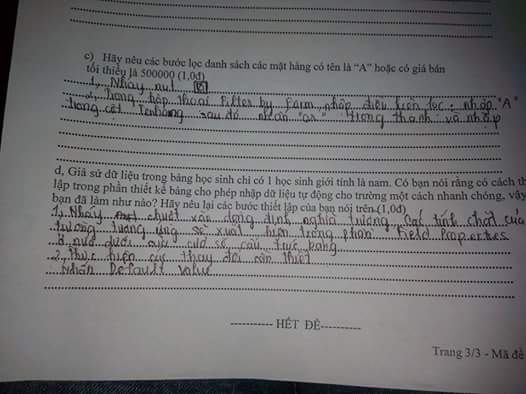 c) Hãy nêu các bước lọc danh sách các mặt hàng có tên là "A" hoặc có giá bán
tối thiểu là 500000 (1,0đ)
1, Nháy nút
2, Trong hộp thoại Filter by Form, nhập điều kiện lọc: nhập "A"
trong cột Tenhang sau đó nhấn "or" trong thanh và nhập
d, Giả sử dữ liệu trong bảng học sinh chỉ có 1 học sinh giới tính là nam. Có bạn nói rằng có cách th
lập trong phần thiết kế bảng cho phép nhập dữ liệu tự động cho trường một cách nhanh chóng, vậy
bạn đã làm như nào? Hãy nêu lại các bước thiết lập của bạn nói trên.(1,0đ)
1, Nháy chuột vào dòng định nghĩa trường. Các tính chất của
trường tương ứng sẽ xuất hiện trong phần Field Properties
ở nửa dưới của cửa sổ cấu trúc bảng
2, Thực hiện các thay đổi cần thiết
Nhấn Default Value
----------- HẾT ĐỀ----------
Trang 3/3 - Mã đề